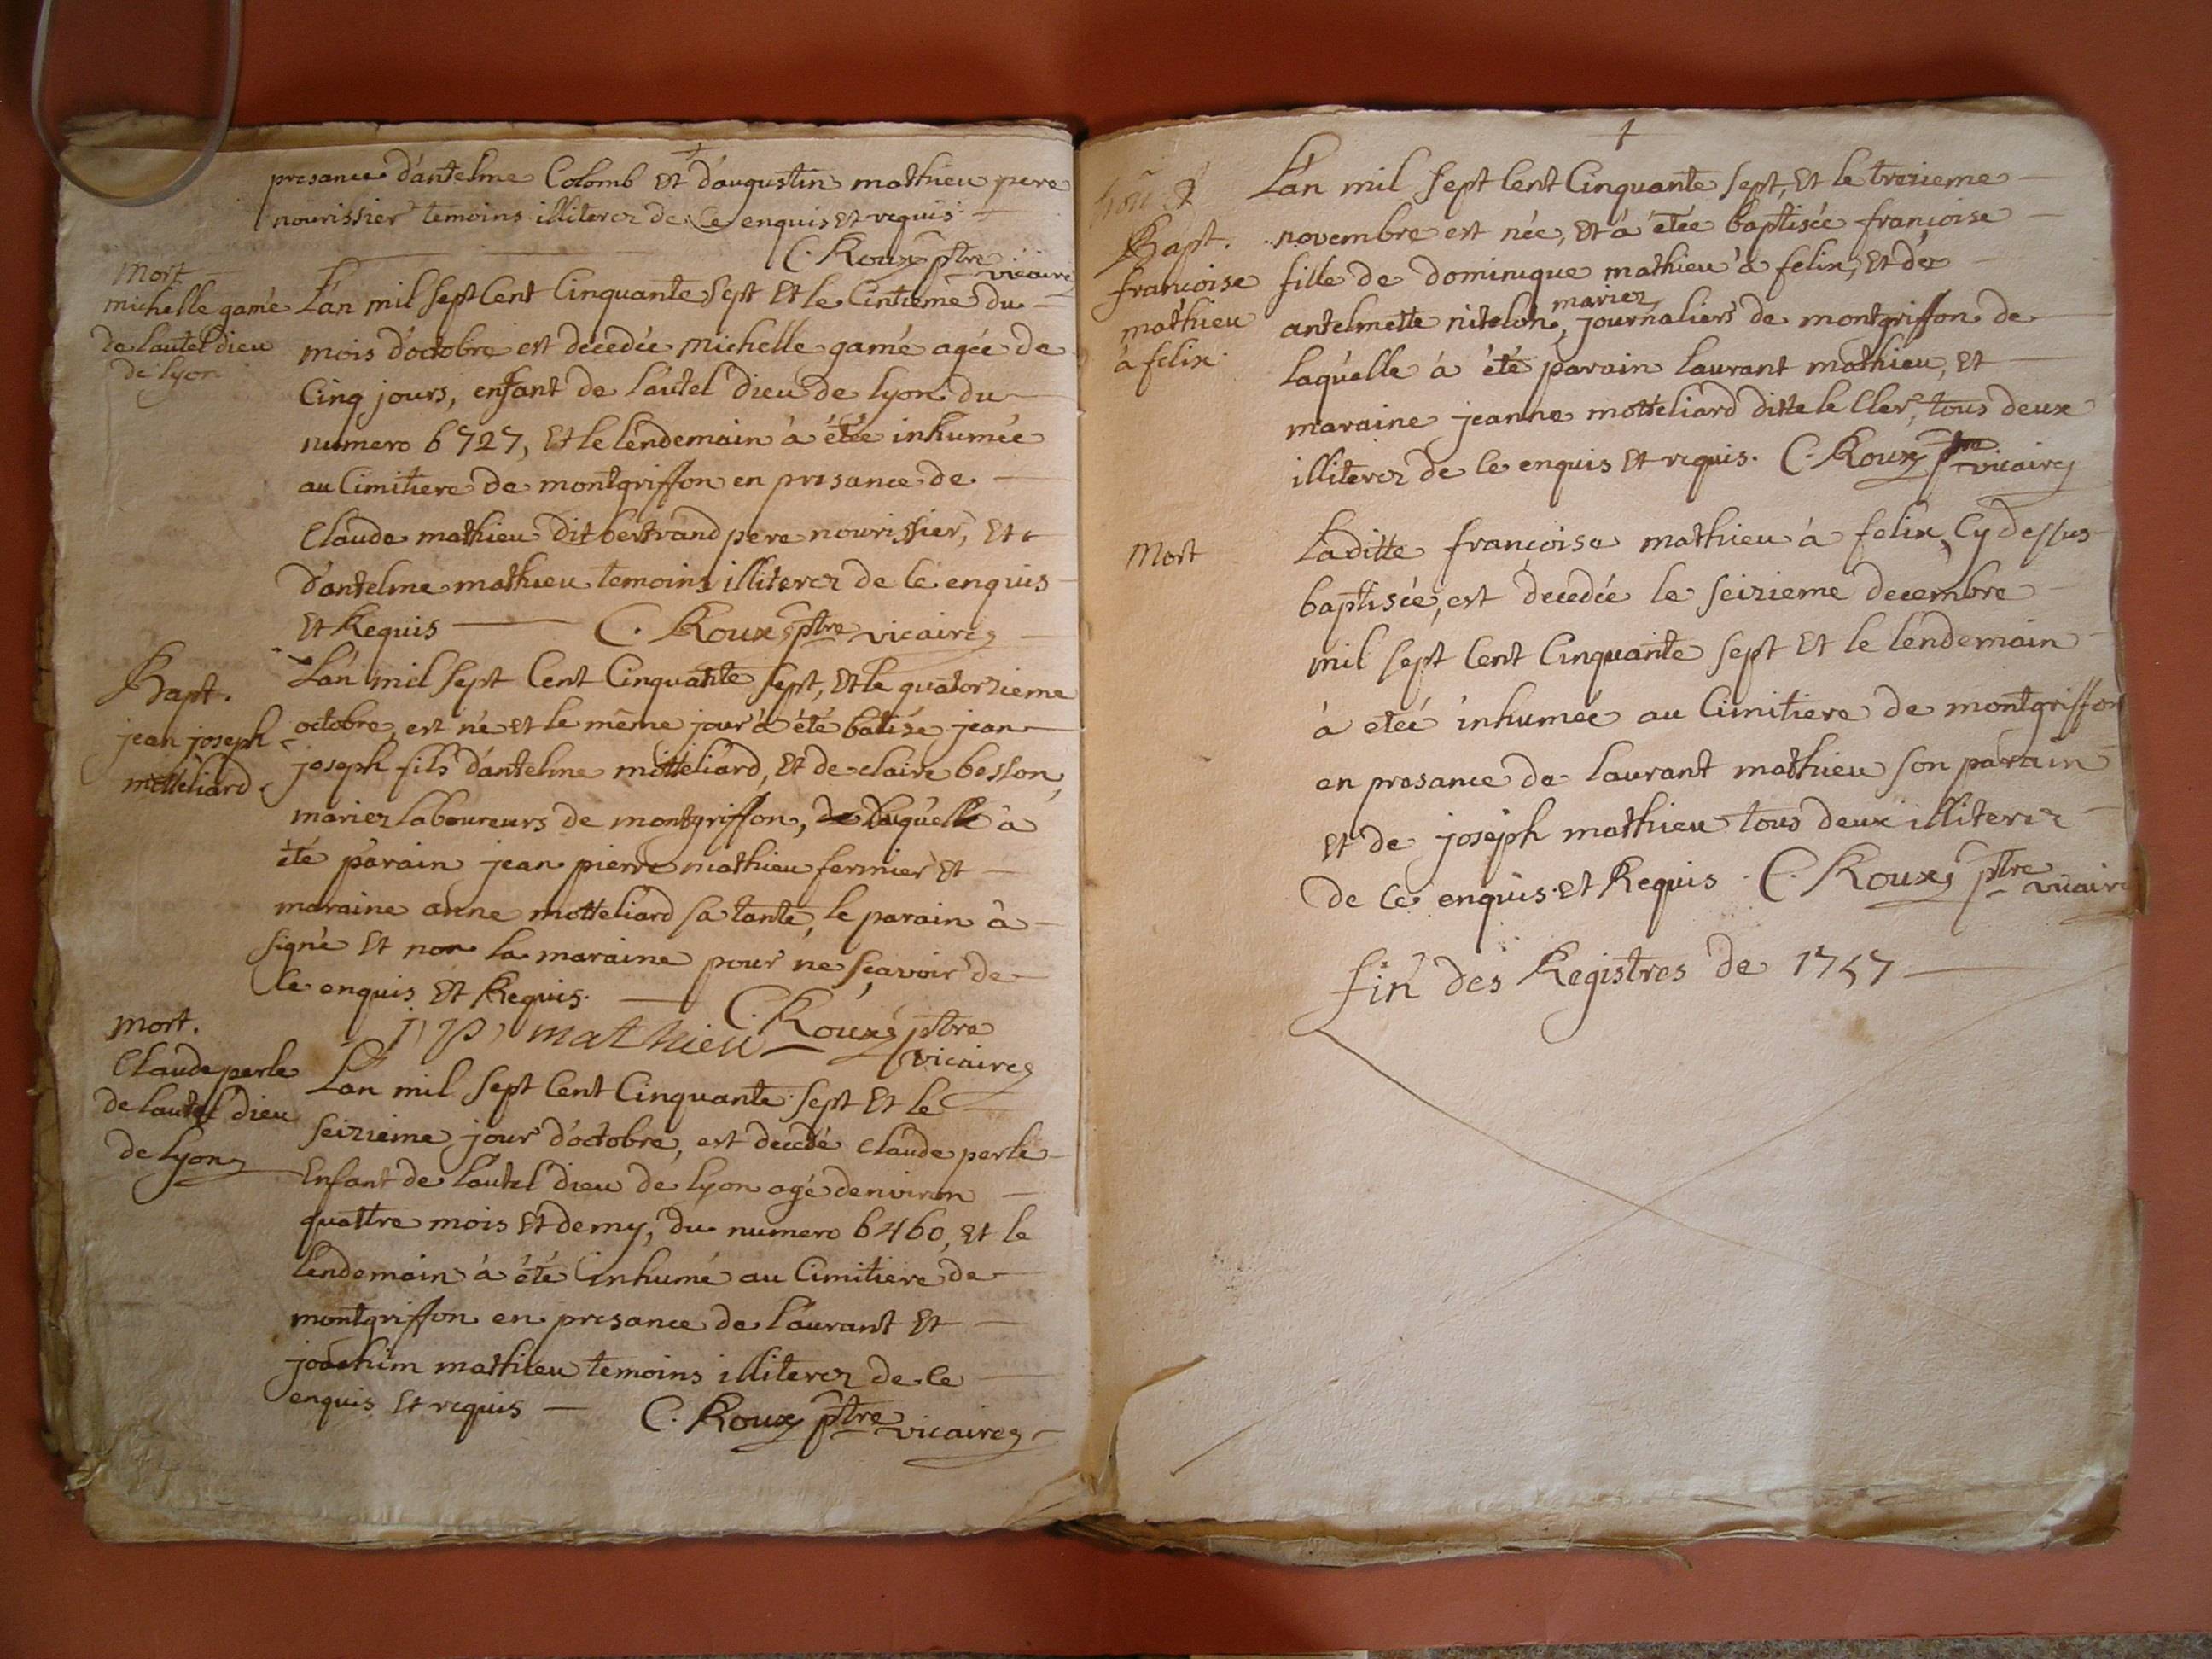 presance d'antelme Colomb Et d'augustin mathieu pere
nourissier temoins illiterez de Ce enquis et requis.
C. Roux ptre vicaire
Mort
michelle gamé
de lautel dieu
de lyon
L'an mil sept Cent Cinquante Sept Et le Cintieme du
mois d'octobre est decedée michelle gamé agée de
Cinq jours, enfant de l'autel dieu de lyon du
numero 6727, Et le lendemain à étée inhumée
au Cimitiere de montgriffon en presance de
Claude mathieu dit bertrand pere nourissier, Et
d'antelme mathieu temoins illiterez de Ce enquis
Et Requis C. Roux ptre vicaire
Bapt.
jean joseph
motteliard
L'an mil sept Cent Cinquante sept, Et le quatorzieme
octobre, est né et le même jour à été batisé jean
joseph fils d'antelme motteliard, Et de claire besson,
mariez laboureurs de montgriffon, duquel à
été parain jean pierre mathieu fermier Et
maraine anne motteliard sa tante, le parain à
signé Et non la maraine pour ne sçavoir de
Ce enquis Et Requis. C. Roux ptre
j p mathieu vicaire
mort.
Claude perle
de lautel dieu
de lyon
L'an mil sept Cent Cinquante sept Et le
seizieme jour d'octobre, est decedé Claude perle
Enfant de l'autel dieu de lyon agé denviron
quattre mois Et demy, du numero 6460, Et le
lendemain à été inhumé au Cimitiere de
montgriffon en presance de l'aurant Et
joachim mathieu temoins illiterez de Ce
enquis Et requis C. Roux ptre vicaire
Bapt.
francoise
mathieu
à felix.
L'an mil sept Cent Cinquante sept, Et le treizieme
novembre est née, Et à étée baptisée françoise
fille de dominique mathieu à felix, Et de
mariez
antelmette nitelon, journaliers de montgriffon de
laquelle à été parain laurant mathieu, Et
maraine jeanne motteliard ditte le Cler, tous deux
illiterez de Ce enquis Et requis. C. Roux ptre vicaire
Mort
Laditte françoise mathieu à felix, Cy dessus
baptisée, est decedée le seizieme decembre
mil sept Cent Cinquante sept Et le lendemain
à etée inhumée au Cimitiere de montgriffon
en presance de laurant mathieu son parain
Et de joseph mathieu tous deux illiterez
de Ce enquis et Requis. C. Roux ptre vicaire
fin des Registres de 1757